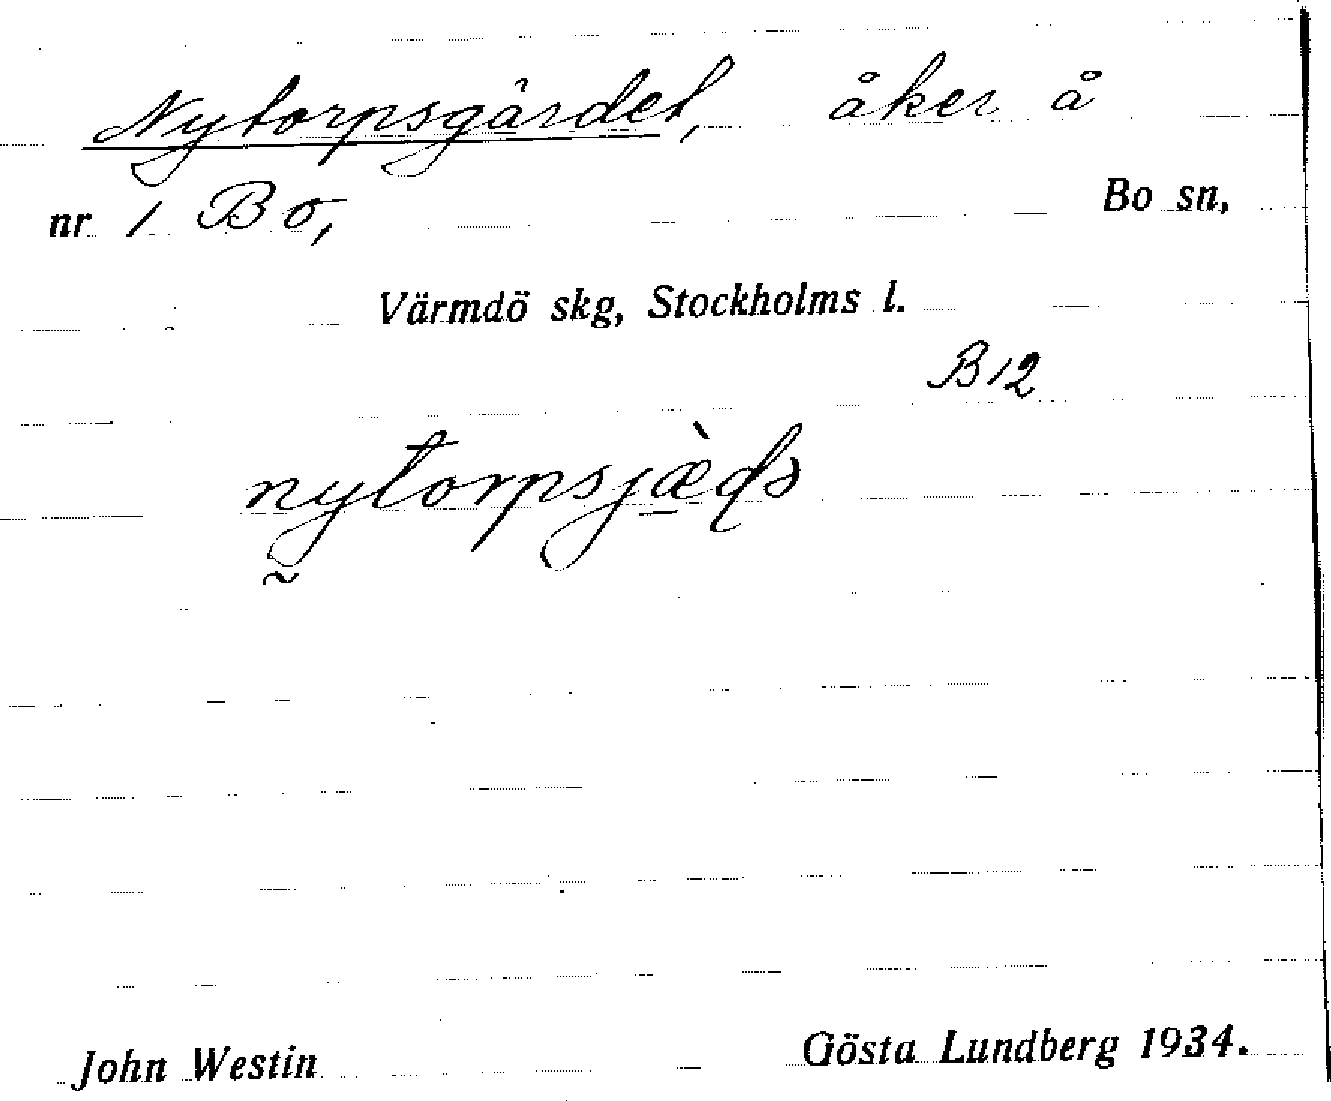 Nytorpsgärdet, åker å
nr 1 Bo, Bo sn,
Värmdö skg, Stockholms l.
B12
nytorpsjæ̀ḍə
John Westin Gösta Lundberg 1934.